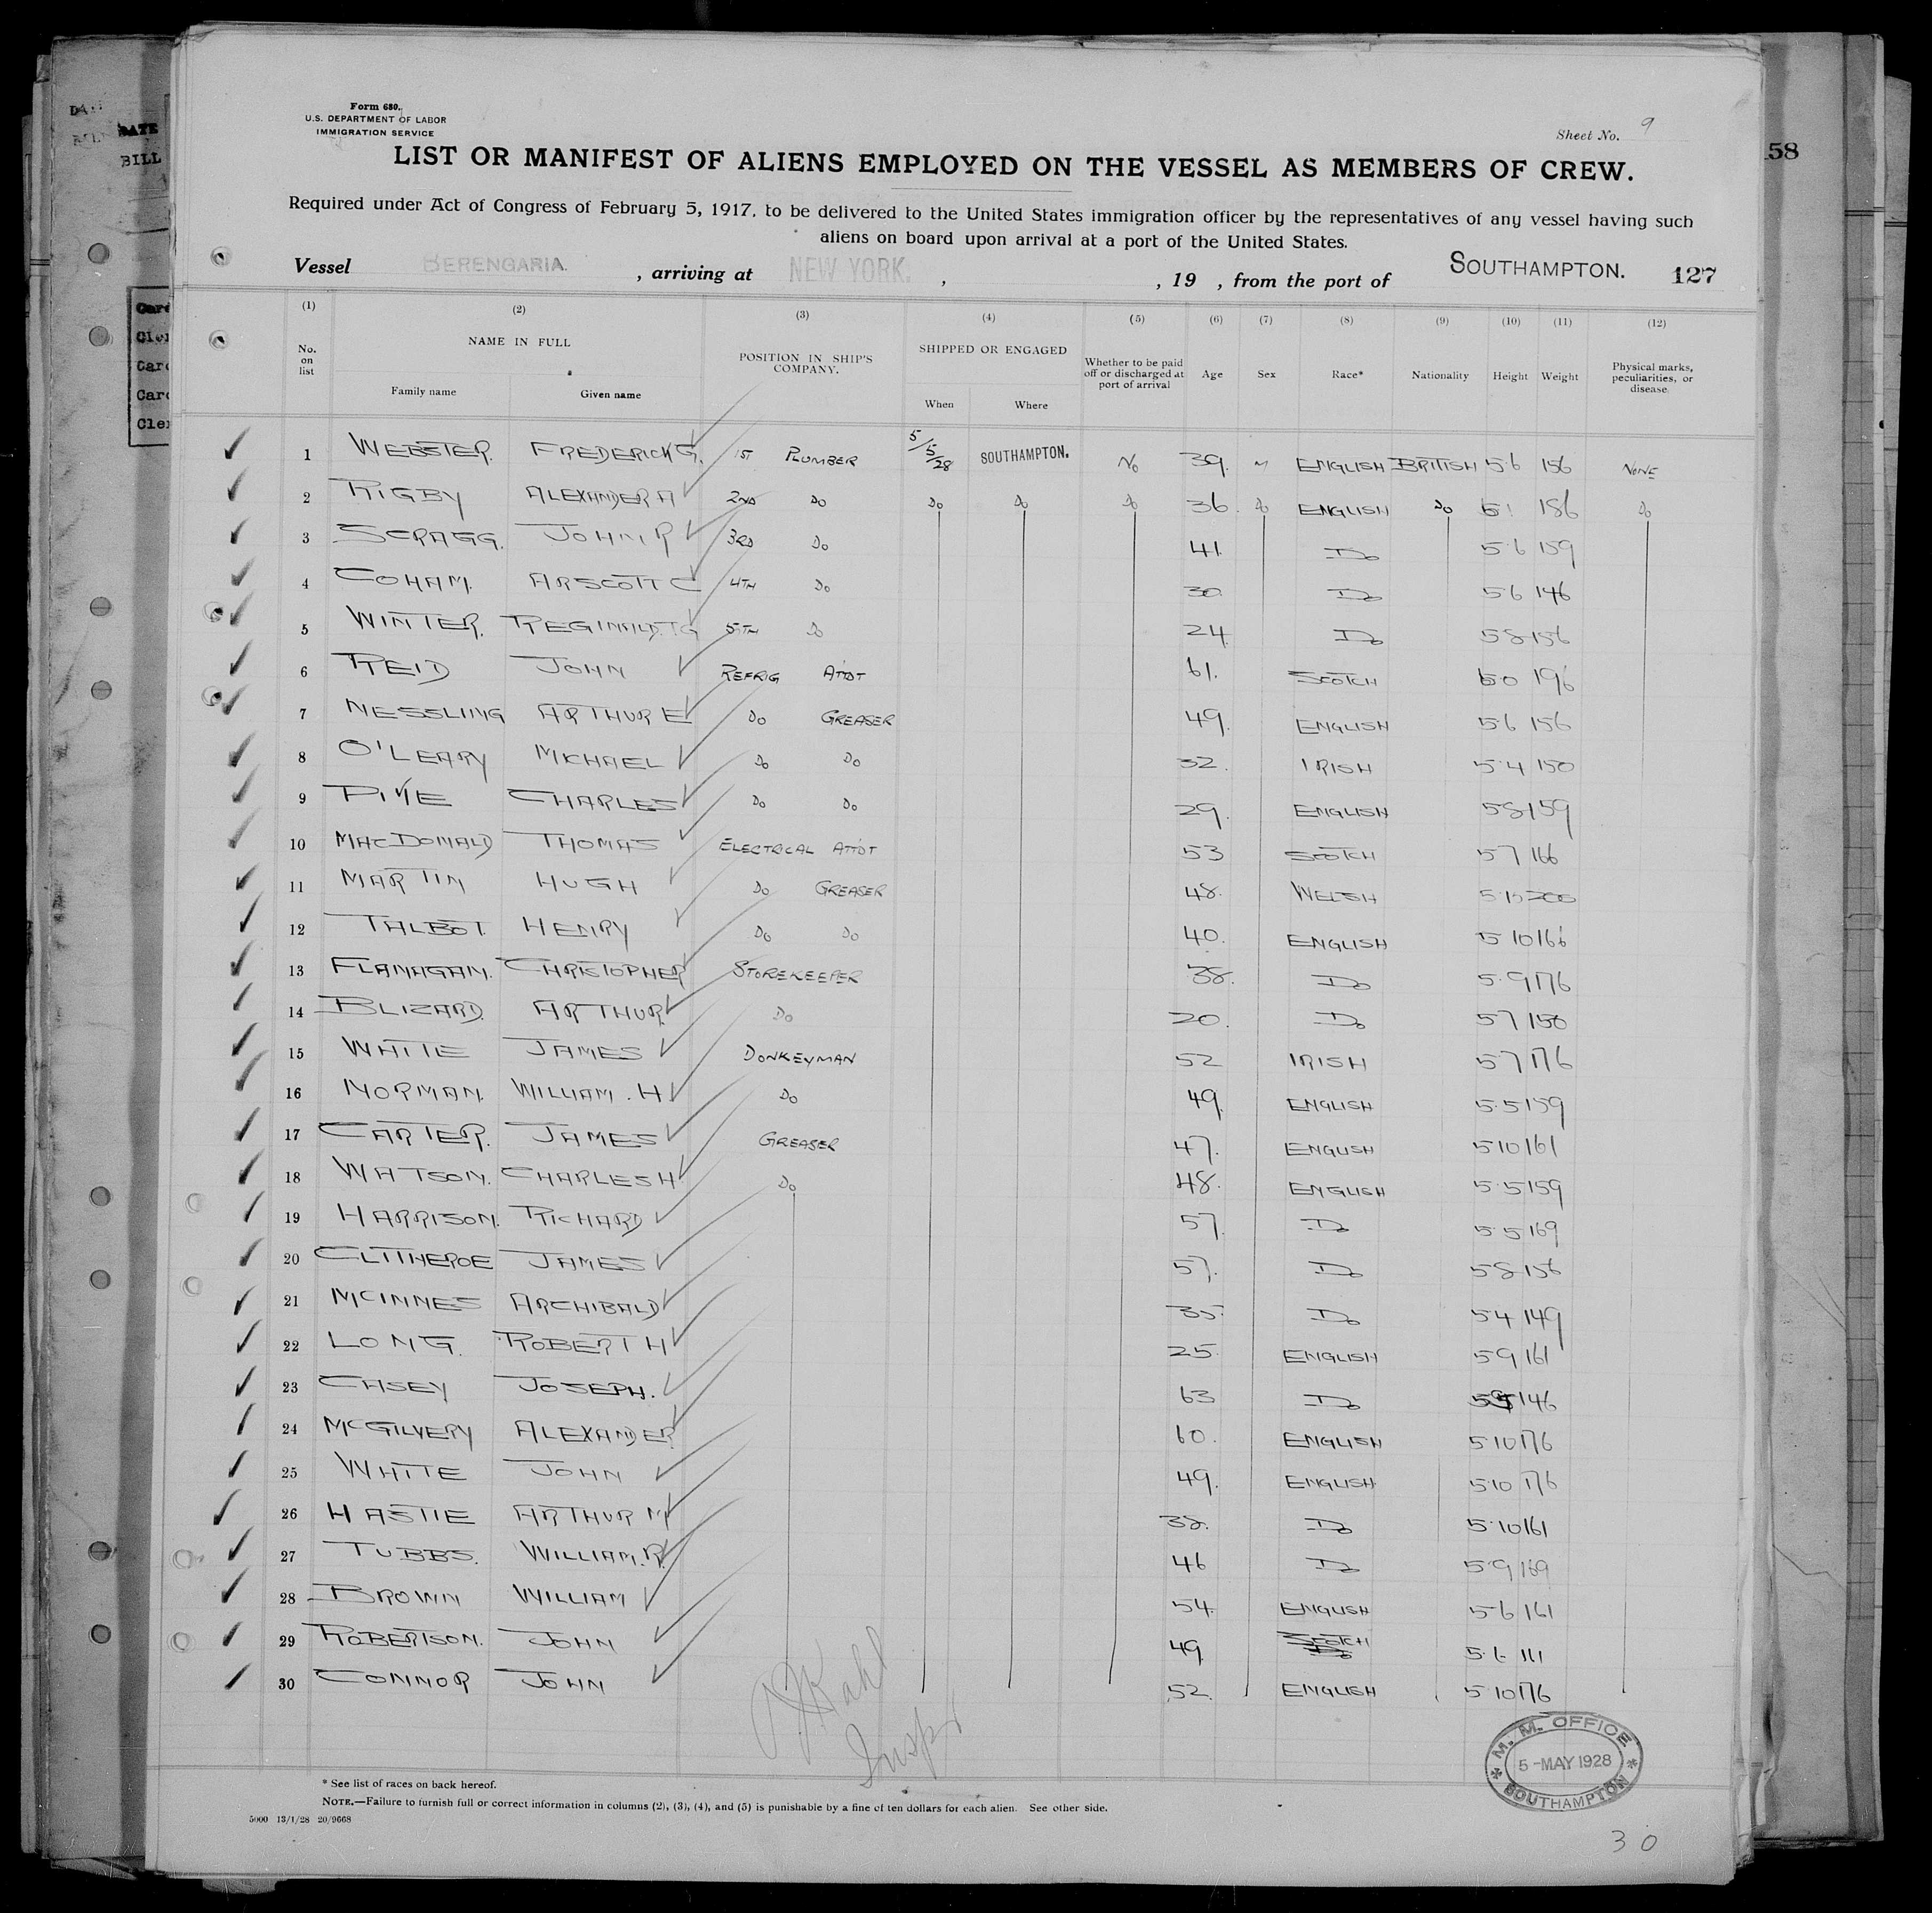 DATE
BILL
58
Form 680.
U.S. DEPARTMENT OF LABOR
IMMIGRATION SERVICE
Sheet No. 9
LIST OR MANIFEST OF ALIENS EMPLOYED ON THE VESSEL AS MEMBERS OF CREW.
Required under Act of Congress of February 5, 1917, to be delivered to the United States immigration officer by the representatives of any vessel having such
aliens on board upon arrival at a port of the United States.
Vessel BERENGARIA. , arriving at NEW YORK. , , 19 , from the port of SOUTHAMPTON. 127
(1) (2) (3) (4) (5) (6) (7) (8) (9) (10) (11) (12)
No. on list NAME IN FULL Family name Given name POSITION IN SHIP'S COMPANY. SHIPPED OR ENGAGED When Where Whether to be paid off or discharged at port of arrival Age Sex Race* Nationality Height Weight Physical marks, peculiarities, or disease
1 WEBSTER. FREDERICK G. 1ST PLUMBER 5/5/28 SOUTHAMPTON. NO 39. M ENGLISH BRITISH 5 6 156 NONE
2 RIGBY ALEXANDER A 2ND DO DO DO DO 36. DO ENGLISH DO 186 DO
3 SCRAGG. JOHN R 3RD DO 41 DO 5 6 159
4 COHAM. ARSCOTT C 4TH DO 30. DO 5 6 146
5 WINTER. REGINALD. T G 5TH DO 24 DO 5 8 156
6 REID JOHN REFRIG ATTDT 61. SCOTCH 6 0 196
7 NESSLING ARTHUR E DO GREASER 49. ENGLISH 5 6 156
8 O'LEARY MICHAEL DO DO 32. IRISH 5 4 150
9 PIKE CHARLES DO DO 29. ENGLISH 5 8 159
10 MACDONALD THOMAS ELECTRICAL ATTDT 53 SCOTCH 5 7 166
11 MARTIN HUGH DO GREASER 48. WELSH 200
12 TALBOT. HENRY DO DO 40. ENGLISH 5 10 166
13 FLANAGAN. CHRISTOPHER STOREKEEPER 38. DO 5 9 176
14 BLIZARD. ARTHUR. DO 20. DO 5 7 150
15 WHITE JAMES DONKEYMAN 52 IRISH 5 7 176
16 NORMAN. WILLIAM. H DO 49. ENGLISH 5 5 159
17 CARTER. JAMES GREASER 47. ENGLISH 5 10 161
18 WATSON. CHARLES H DO 48. ENGLISH 5 5 159
19 HARRISON. RICHARD 57. DO 5 5 169
20 CLITHEROE JAMES 57. DO 5 8 156
21 MCINNES ARCHIBALD 35. DO 5 4 149
22 LONG. ROBERT H 25. ENGLISH 5 9 161
23 CASEY JOSEPH. 63 DO 146
24 MCGILVERY ALEXANDER 60. ENGLISH 5 10 176
25 WHITE JOHN 49. ENGLISH 5 10 176
26 HASTIE ARTHUR M 38. DO 5 10 161
27 TUBBS. WILLIAM. R. 46 DO 5 9 169
28 BROWN WILLIAM 54. ENGLISH 5 6 161
29 ROBERTSON. JOHN 49. SCOTCH 5 6
30 CONNOR JOHN 52. ENGLISH 5 10 176
Inspr
M. M. OFFICE
5-MAY 1928
SOUTHAMPTON
* See list of races on back hereof.
NOTE.—Failure to furnish full or correct information in columns (2), (3), (4), and (5) is punishable by a fine of ten dollars for each alien. See other side.
5000 13/1/28 20/9668
30